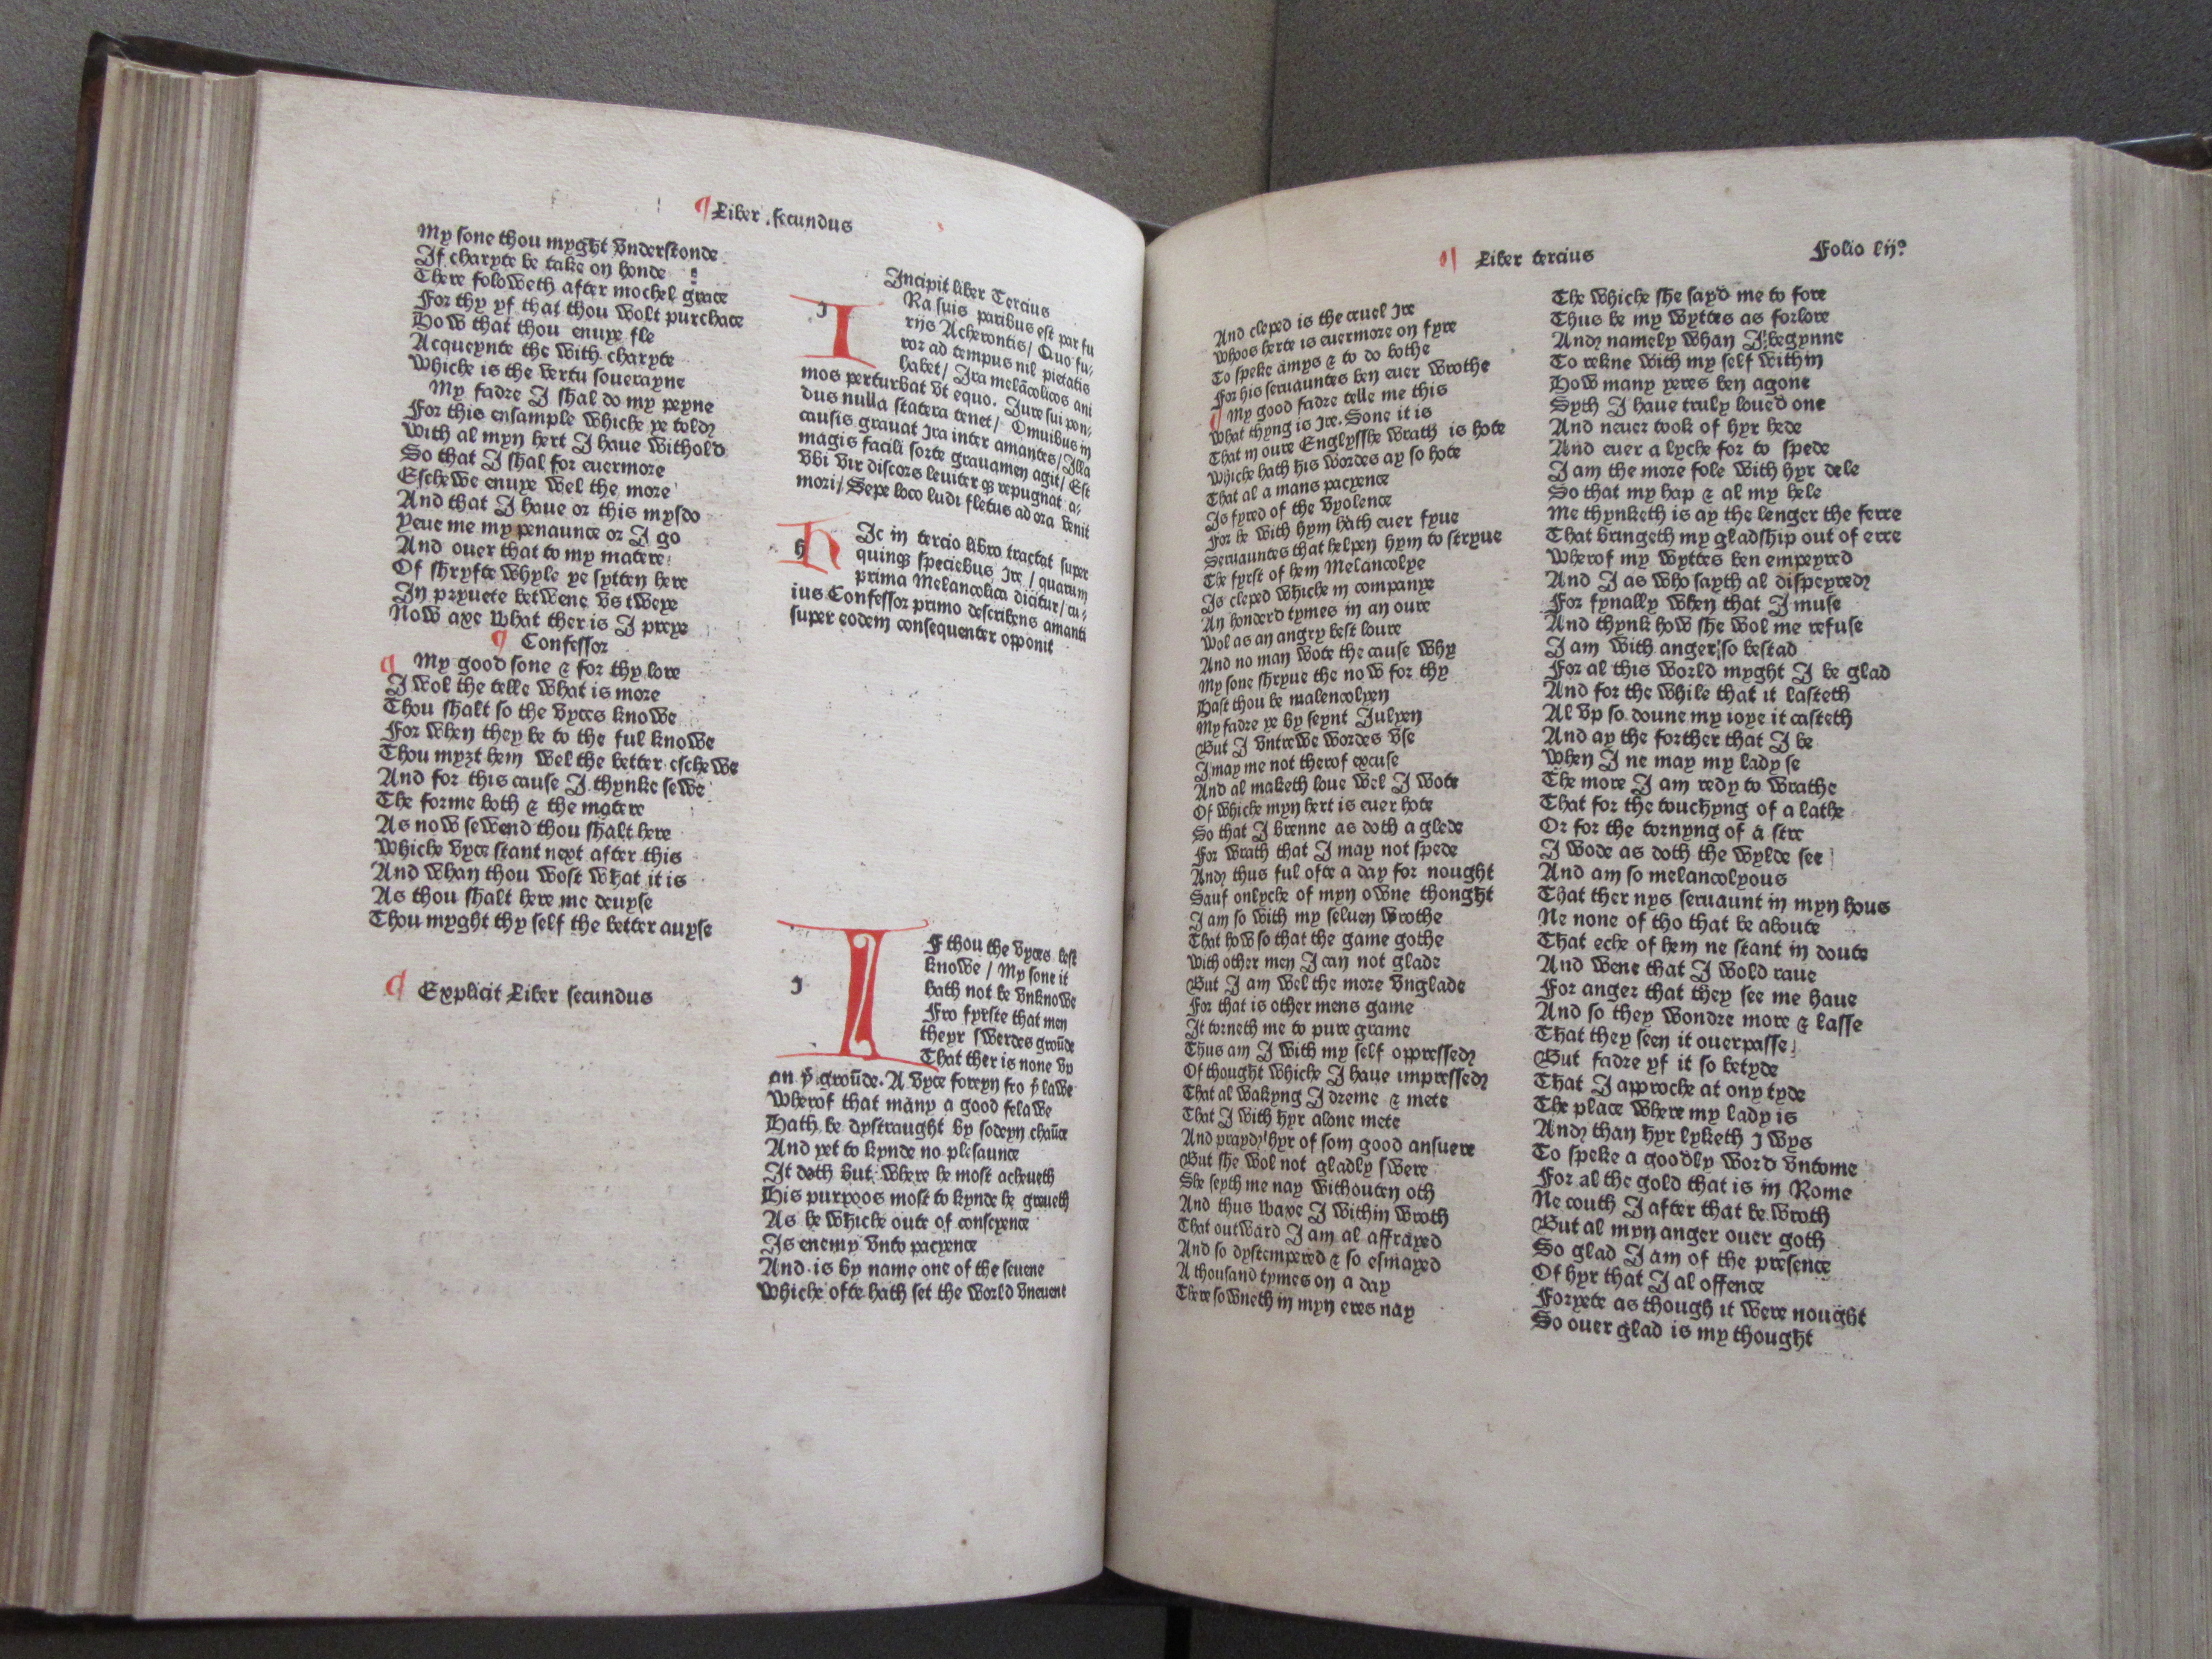 ¶ Liber secundus
My sone thou myght vnderstonde
If charyte be take on honde
There foloweth after mochel grace
For thy yf that thou wolt purchace
How that thou enuye fle
Acqueynte the with charyte
Whiche is the vertu souerayne
My fadre I shal do my peyne
For this ensample whiche ye told
With al myn hert I haue withold
So that I shal for euermore
Eschewe enuye wel the more
And that I haue or this mysdo
Yeue me my penaunce or I go
And ouer that to my matere
Of shryfte whyle ye sytten here
In pryuete betwene vs tweye
Now axe what ther is I preye
¶ Confessor
¶ My good sone & for thy lore
I wol the telle what is more
Thou shalt so the vyces knowe
For when they be to the ful knowe
Thou myȝt hem wel the better eschewe
And for this cause I thynke sewe
The forme both & the matere
As now sewend thou shalt here
Whiche vyce stant next after this
And whan thou wost what it is
As thou shalt here me deuyse
Thou myght thy self the better auyse
¶ Explicit Liber secundus
Incipit liber Tercius
I Ra suis paribus est par fu
rijs Acherontis/ Quo fu/
ror ad tempus nil pietatis
habet/ Ira melācolicos ani
mos perturbat vt equo. Iure sui pon/
dus nulla statera tenet/ Omuibus in
causis grauat Ira inter amantes/ Illa
magis facili sorte grauamen agit/ Est
vbi vir discors leuiter qȝ repugnat a/
mori/ Sepe loco ludi fletus ad ora venit
h Ic in tercio libro tractat super
quinqȝ speciebus Ire / quarum
prima Melancolica dicitur/ cu/
ius Confessor primo describens amanti
super eodem consequenter opponit
I F thou the vyces lest
knowe / My sone it
hath not be vnknowe
Fro fyrste that men
theyr swerdes groūde
That ther is none vp
an yͤ groūde. A vyce foreyn fro yͤ lawe
Wherof that many a good felawe
Hath be dystraught by sodeyn chaūce
And yet to kynde no plesaunce
It doth but where he most acheueth
His purpoos most to kynde he greueth
As he whiche oute of conscyence
Is enemy vnto pacyence
And is by name one of the seuene
Whiche ofte hath set the world vneuene
¶ Liber tercius
Folio lijº
And cleped is the cruel Ire
Whoos herte is euermore on fyre
To speke amys & to do bothe
For his seruauntes ben euer wrothe
¶ My good fadre telle me this
What thyng is Ire. Sone it is
That in oure Englysshe wrath is hote
Whiche hath his wordes ay so hote
That al a mans pacyence
Is fyred of the vyolence
For he with hym hath euer fyue
Seruauntes that helpen hym to stryue
The fyrst of hem Melancolye
Is cleped whiche in companye
An honderd tymes in an oure
Wol as an angry best loure
And no man wote the cause why
My sone shryue the now for thy
Hast thou be malencolyen
My fadre ye by seynt Julyen
But I vntrewe wordes vse
I may me not therof excuse
And al maketh loue wel I wote
Of whiche myn hert is euer hote
So that I brenne as doth a glede
For wrath that I may not spede
And thus ful ofte a day for nought
Sauf onlyche of myn owne thonght
I am so with my seluen wrothe
That how so that the game gothe
With other men I can not glade
But I am wel the more vnglade
For that is other mens game
It torneth me to pure grame
Thus am I with my self oppressed
Of thought whiche I haue impressed
That al wakyng I dreme & mete
That I with hyr alone mete
And prayd hyr of som good ansuere
But she wol not gladly swere
She seyth me nay withouten oth
And thus waxe I within wroth
That outward I am al affrayed
And so dystempered & so esmayed
A thousand tymes on a day
There sowneth in myn eres nay
The whiche she sayd me to fore
Thus be my wyttes as forlore
And namely whan I begynne
To rekne with my self within
How many yeres ben agone
Syth I haue truly loued one
And neuer took of hyr hede
And euer a lyche for to spede
I am the more fole with hyr dele
So that my hap & al my hele
Me thynketh is ay the lenger the ferre
That bringeth my gladship out of erre
Wherof my wyttes ben empeyred
And I as who sayth al dispeyred
For fynally when that I muse
And thynk how she wol me refuse
I am with anger so bestad
For al this world myght I be glad
And for the while that it lasteth
Al vp so doune my ioye it casteth
And ay the forther that I be
When I ne may my lady se
The more I am redy to wrathe
That for the touchyng of a lathe
Or for the tornyng of a stre
I wode as doth the wylde see
And am so melancolyous
That ther nys seruaunt in myn hous
Ne none of tho that be aboute
That eche of hem ne stant in doute
And wene that I wold raue
For anger that they see me haue
And so they wondre more & lasse
That they seen it ouerpasse
But fadre yf it so betyde
That I approche at ony tyde
The place where my lady is
And than hyr lyketh I wys
To speke a goodly word vntome
For al the gold that is in Rome
Ne couth I after that be wroth
But al myn anger ouer goth
So glad I am of the presence
Of hyr that I al offence
Foryete as though it were nought
So ouer glad is my thought